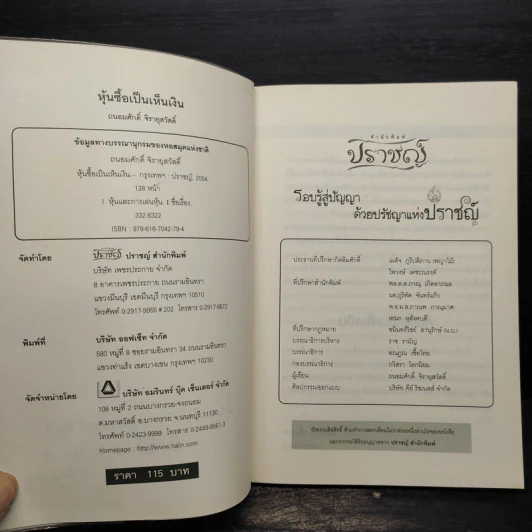 หุ้นซื้อเป็นเห็นเงิน
ถนอมศักดิ์ จิรายุสวัสดิ์
ข้อมูลทางบรรณานุกรมของหอสมุดแห่งชาติ
ถนอมศักดิ์ จิรายุสวัสดิ์
หุ้นซื้อเป็นเห็นเงิน.-- กรุงเทพฯ : ปราชญ์, 2554.
128 หน้า
1. หุ้นและการเล่นหุ้น. I. ชื่อเรื่อง.
332.6322
ISBN : 978-616-7042-79-4
จัดทำโดย
ปราชญ์ ปราชญ์ สำนักพิมพ์
บริษัท เพชรประกาย จำกัด
8 อาคารเพชรประกาย ถนนรามอินทรา
แขวงมีนบุรี เขตมีนบุรี กรุงเทพฯ 10510
โทรศัพท์ 0-2917-9855 # 202 โทรสาร 0-2917-8672
พิมพ์ที่
บริษัท ออฟเซ็ท จำกัด
580 หมู่ที่ 8 ซอยรามอินทรา 34 ถนนรามอินทรา
แขวงท่าแร้ง เขตบางเขน กรุงเทพฯ 10230
จัดจำหน่ายโดย
บริษัท อมรินทร์ บุ๊ค เซ็นเตอร์ จำกัด
108 หมู่ที่ 2 ถนนบางกรวย-จงถนอม
ต.มหาสวัสดิ์ อ.บางกรวย จ.นนทบุรี 11130
โทรศัพท์ 0-2423-9999 โทรสาร 0-2449-9561-3
Homepage : http://www.naiin.com
ราคา 115 บาท
สำนักพิมพ์
ปราชญ์
รอบรู้สู่ปัญญา
ด้วยปรัชญาแห่งปราชญ์
ประธานที่ปรึกษากิตติมศักดิ์
ไพวงษ์ เตชะณรงค์
ที่ปรึกษาสำนักพิมพ์
นส.ภูริทัต จันทร์แก้ว
ที่ปรึกษากฎหมาย
บรรณาธิการบริหาร ราช รามัญ
บรรณาธิการ
กองบรรณาธิการ
ผู้เขียน ถนอมศักดิ์ จิรายุสวัสดิ์
ศิลปกรรมออกแบบ
สงวนลิขสิทธิ์
นอกจากจะได้รับอนุญาตจาก ปราชญ์ สำนักพิมพ์